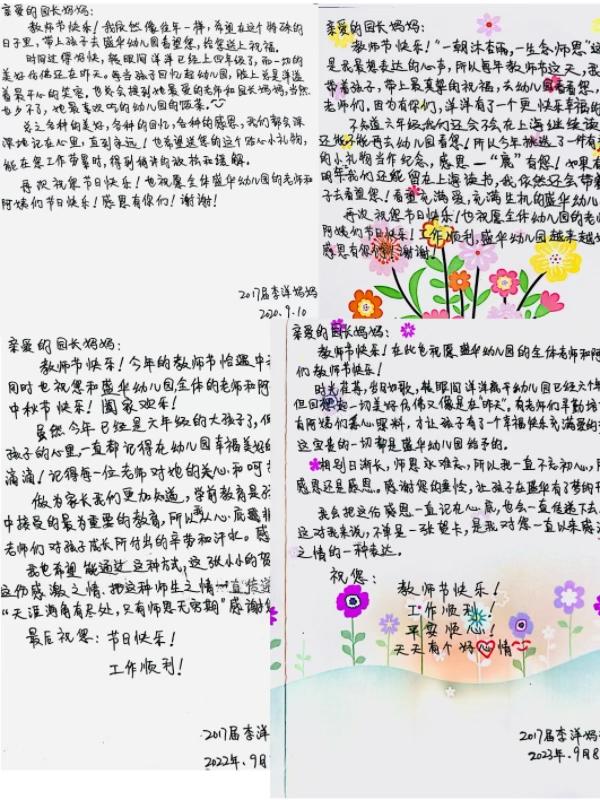 亲爱的园长妈妈:
教师节快乐!我依然像往年一样,希望在这个特殊的
日子里,带上孩子去盛华幼儿园看望您,给您送上祝福。
时间过得好快,转眼间洋洋已经上四年级了,而一切的
美好仿佛还在昨天。每当孩子回忆起幼儿园,脸上总是洋溢
着最开心的笑容,也总会提到她最爱的老师和园长妈妈,当然
也少不了,她最喜欢吃的幼儿园的饭菜。
总之各种的美好,各种的回忆,各种的感恩,我们都会深
深地记在心里,直到永远!也希望送您的这个贴心小礼物,
能在您工作劳累时,得到精满的放松和缓解。
再次祝您节日快乐!也祝愿全体盛华幼儿园的老师和
阿姨们节日快乐!感恩有你们!谢谢!
2017届李洋妈妈
2020.9.10
亲爱的园长妈妈:
教师节快乐!“一朝沐杏雨,一生念师恩”这
是我最想表达的心声,所以每年教师节这天,我
带着孩子,带上最真挚的祝福,去幼儿园看看您,
老师们,因为有你们,洋洋有了一个更快乐幸福的
不知道六年级我们还会不会在上海继续读
还能不能再去幼儿园看您!所以今年挑选了一件有
的小礼物当作纪念,感恩一“展”有您!如果有
明年我们还能留在上海读书,我依然还会带着
子去看望您!看望充满爱,充满生机的盛华幼儿
再次祝您节日快乐!也祝愿全体幼儿园的老师
阿姨们节日快乐!工作顺利,盛华幼儿园越来越
感恩有你们!谢谢!
亲爱的园长妈妈:
教师节快乐!今年的教师节恰逢中
同时也祝您和盛华幼儿园全体的老师和阿
中秋节快乐!阖家欢乐!
虽然今年已经是六年级的大孩子了,但
孩子的心里,一直都记得在幼儿园幸福美好的
滴滴!记得每一位老师对她的关心和呵
做为家长我们更加知道,学前教育是孩
中接受的最为重要的教育,所以从心底
老师们对孩子成长所付出的辛劳和汗水。感
我也希望能通过这种方式,这张小小的贺
这份感激之情,把这种师生之情一直传递
“天涯海角有尽处,只有师恩无穷期”感谢
最后祝您:节日快乐!
工作顺利!
2017届李洋
2022年.9月
亲爱的园长妈妈:
教师节快乐!在此也祝愿盛华幼儿园的全体老师和阿
们教师节快乐!
时光荏苒,岁月如歌,转眼间洋洋离开幼儿园已经六年
但回想起一切美好仿佛又像是在“昨天”。有老师们辛勤培
有阿姨们悉心照料,才让孩子有了个幸福快乐充满爱的
这宝贵的一切都是盛华幼儿园给予的。
相别日渐长,师恩永难忘,所以我一直不忘初心,
感恩还是感恩。感谢您的重恰,让孩子在盛华有了梦的
我会把这份感恩一直记在心底,也会一直传递下去
这对我来说,不单是一张贺卡,是我对您一直以来感
之情的一种表达。
祝您:
教师节快乐!
工作顺利!
平安顺心!
天天有个好心情
2017届李洋妈
2023年.9月8